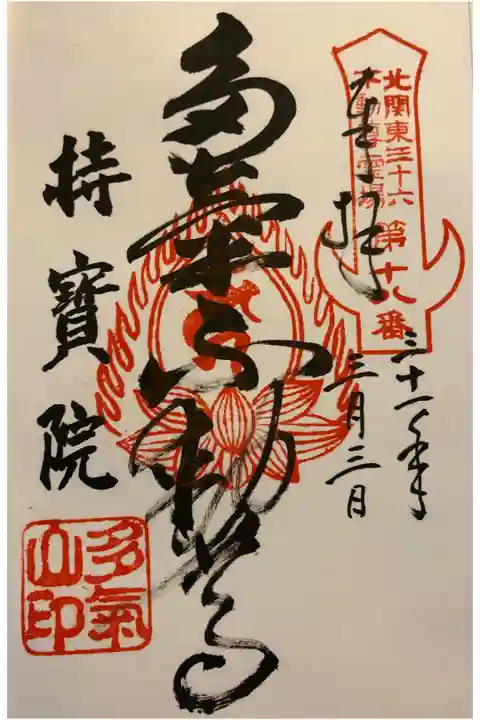 北関東三十六
不動尊霊場
第十八番
奉拝
三十一年
三月三日
多氣不動尊
持寳院
多氣
山印